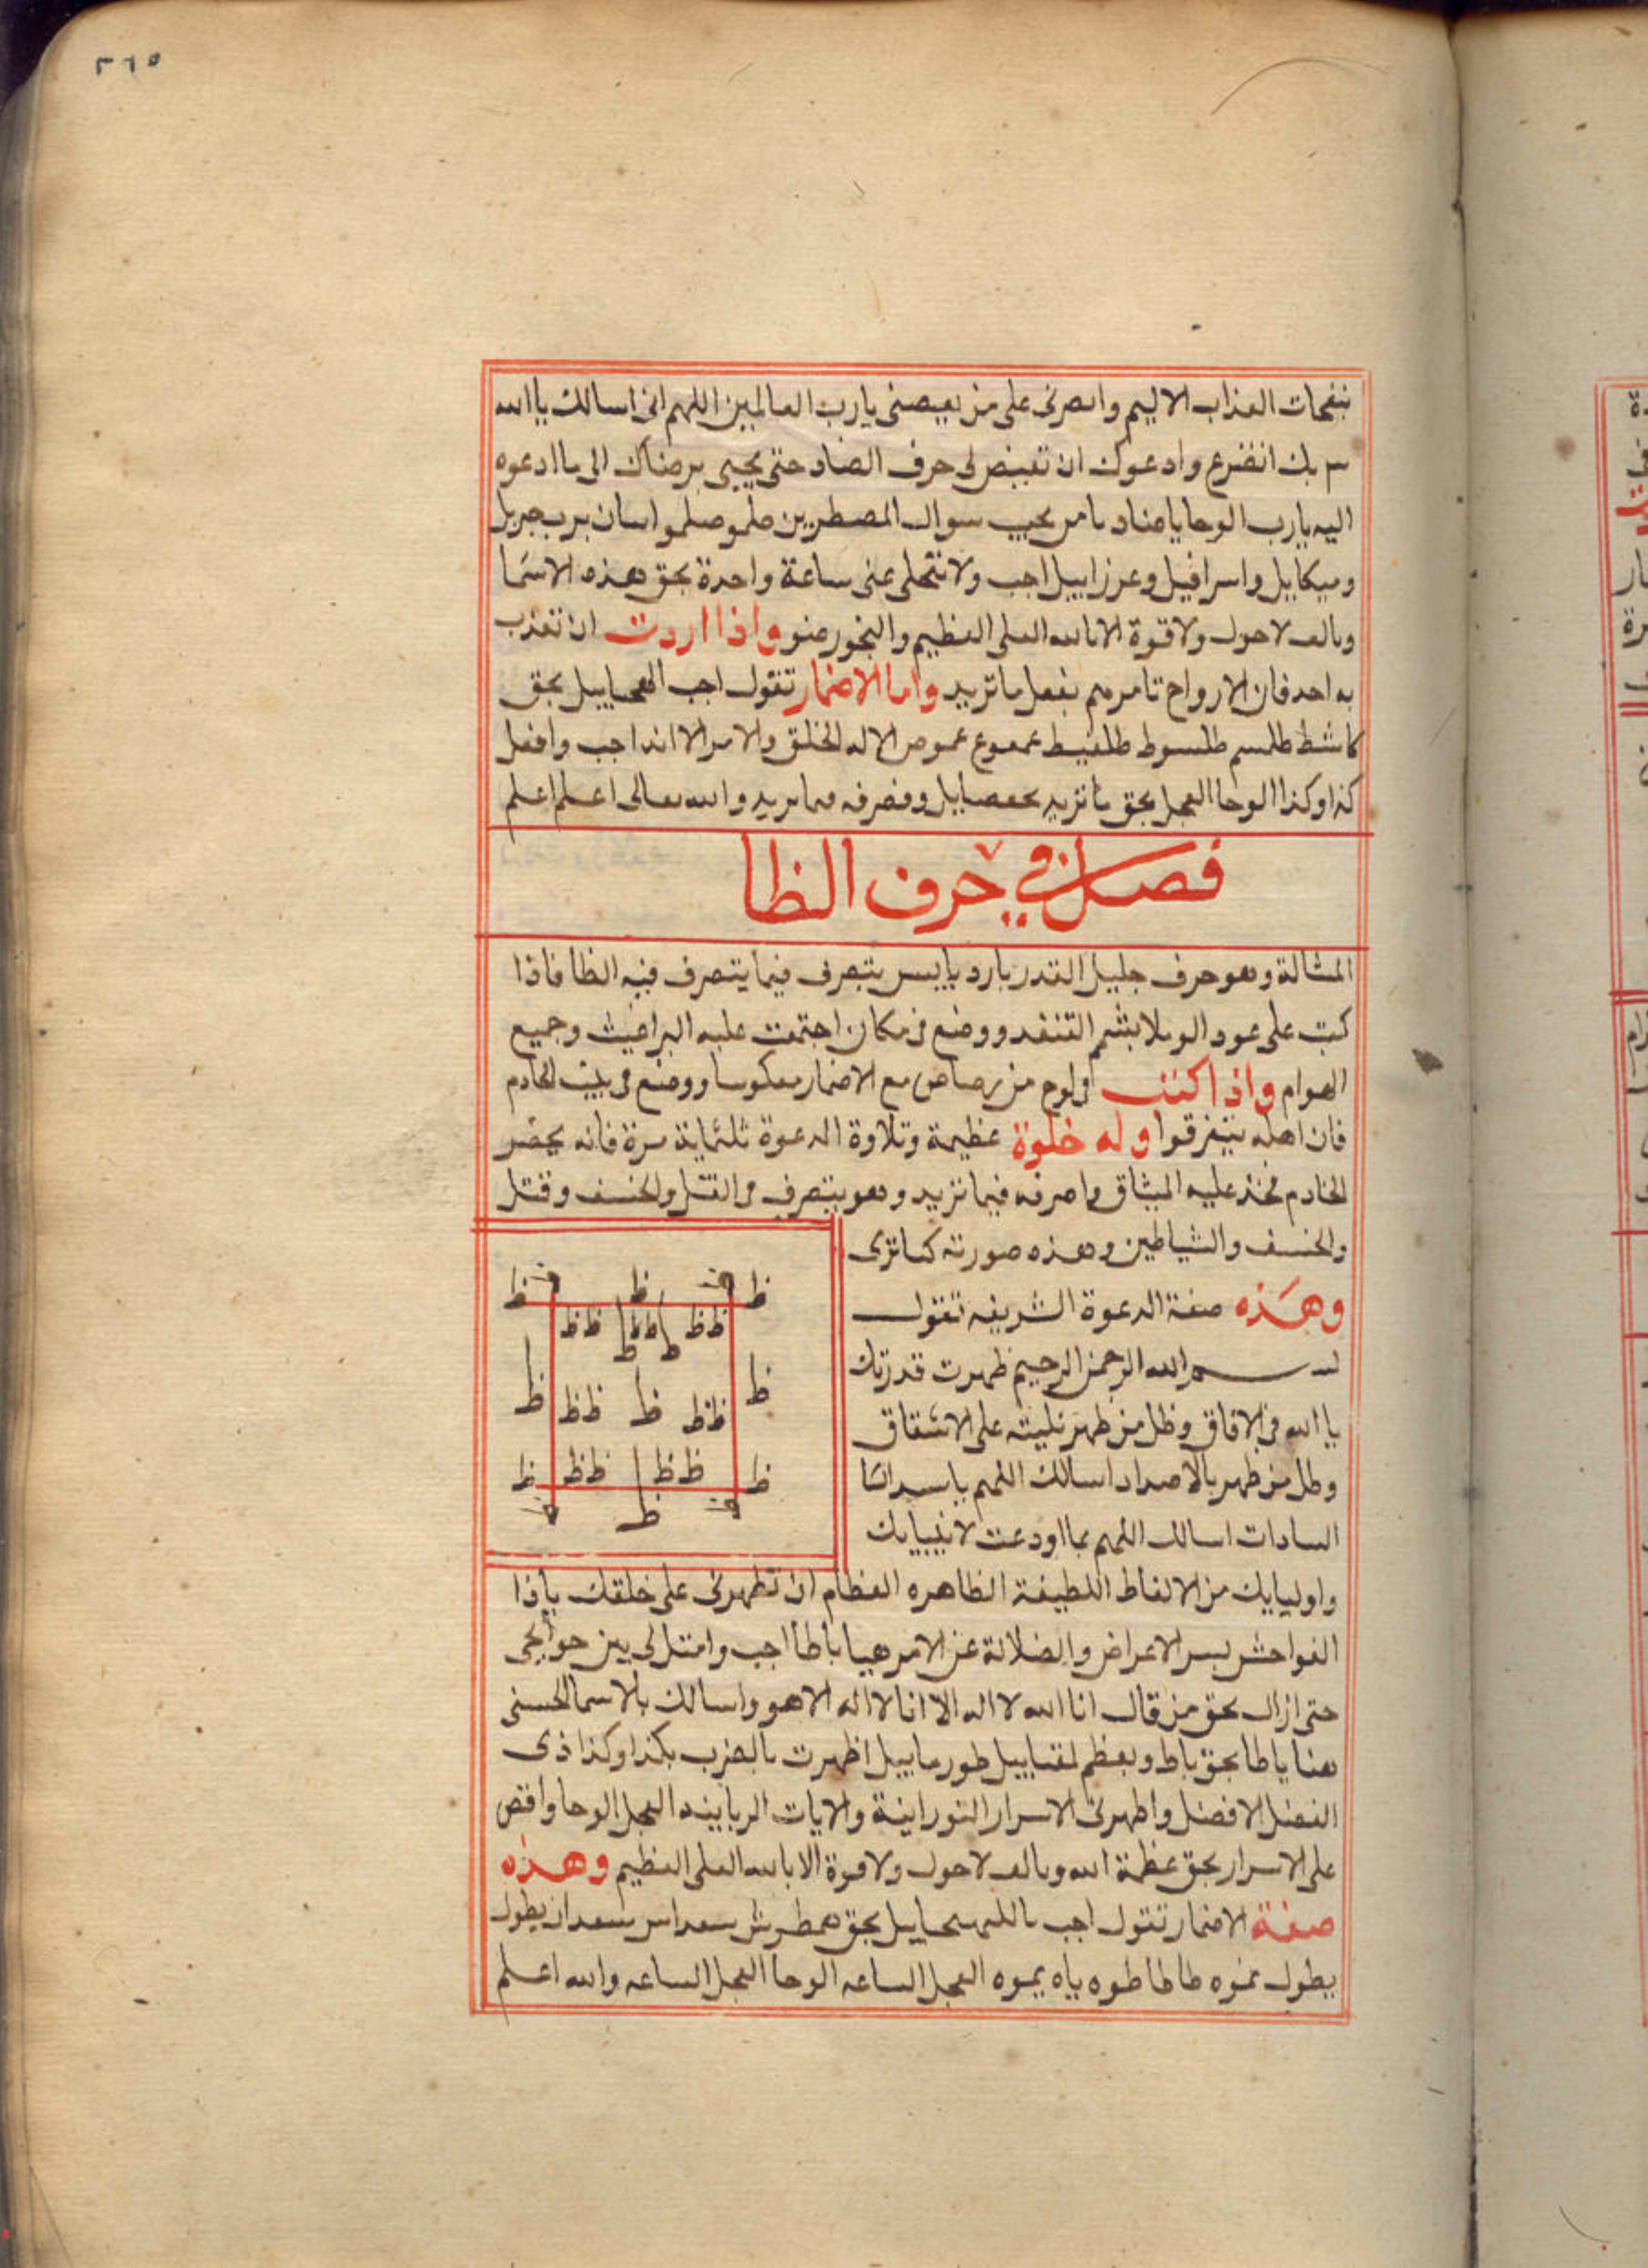 ٣٦٥
بنفحات العذاب الاليم وانصرنى على من يعصنى يارب العالمين اللهم انى اسالك ياالله
بك اتضرع وادعوك ان تقيض لى حرف الضاد حتى يجيبى برضاك الى ماادعوه
اليه يارب الوحا ياضاد يامن يجيب سوال المضطرين جبريل
وميكايل واسرافيل وعزراييل اجب ولا تتخلى عنى ساعة واحدة بحق هذه الاسما
وبالف لاحول ولا قوة الا بالله العلى العظيم والبخور واذا اردت ان تعذب
به احد فان الارواح تامرهم بفعل ما تريد واما الاضمار تقول اجب بحق
طلسم طلسوط الا له الخلق والامر الا اجب وافعل
كذا وكذا الوحا العجل بحق ما تريد وتصرفه فيما تريد والله تعالى اعلم اعلم
فصل فى حرف الظا
المشالة وهو حرف جليل القدر بارد يابيس يتصرف فيما يتصرف فيه الظا فاذا
كتب على عود القنفد ووضع فى مكان اجتمعت عليه البراغيث وجميع
الهوام واذا كتب فى لوح من رصاص مع الاضمار معكوسا ووضع فى بيت الخادم
فان اهله يتفرقوا وله خلوة عظيمة وتلاوة الدعوة ثلثماية مرة فانه يحضر
الخادم فخذ عليه الميثاق واصرفه فيما تريد وهو يتصرف فى القتل والخسف وقتل
والخسف والشياطين وهذه صورته كما ترى
وهذه صفة الدعوة الشريفه تقول
بسم الله الرحمن الرحيم ظهرت قدرتك
ياالله فى الافاق وظل من ظهر على الاشقاق
وظل من ظهر بالاضداد اسالك اللهم ياسيد
السادات اسالك اللهم بمااودعت لانبيايك
ظ ظ ظ
ظ ظ ظ ظ ظ ظ
ظ ظ
ظ ظ ظ ظ ظ
ظ ظ ظ ظ ظ ظ
ظ
واوليايك من الالفاظ اللطيفة الظاهره العظام ان تظهرنى على خلقك ياذا
الفواحش بسر الاعراض والضلالة عن الامر هيا ياظا اجب وامتثل لى بين حوايجى
حتى ازال بحق من قال انا الله لا اله الا انا لا اله الا هو واسالك بالاسما الحسنى
هنا ياظا بحق باط وبعظم اظهرت بالضرب بكذا وكذا ذى
الفضل الافضل واظهرنى الاسرار النورانية والايات الربانيه العجل الوحا واقص
على الاسرار بحق عظمة الله وبالف لاحول ولا قوة الا بالله العلى العظيم وهذه
صفة الاضمار تقول اجب بحق
العجل الساعه الوحا العجل الساعه والله اعلم